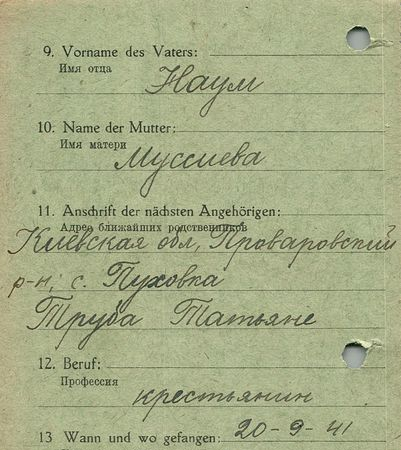 9. Vorname des Vaters:
Имя отца
Наум
10. Name der Mutter:
Имя матери
Муссиева
11. Anschrift der nächsten Angehörigen:
Адрес ближайших родственников
Киевская обл, Проваровский
р-н, с. Пуховка
Труба Татьяне
12. Beruf:
Профессия
крестьянин
13 Wann und wo gefangen: 20-9-41